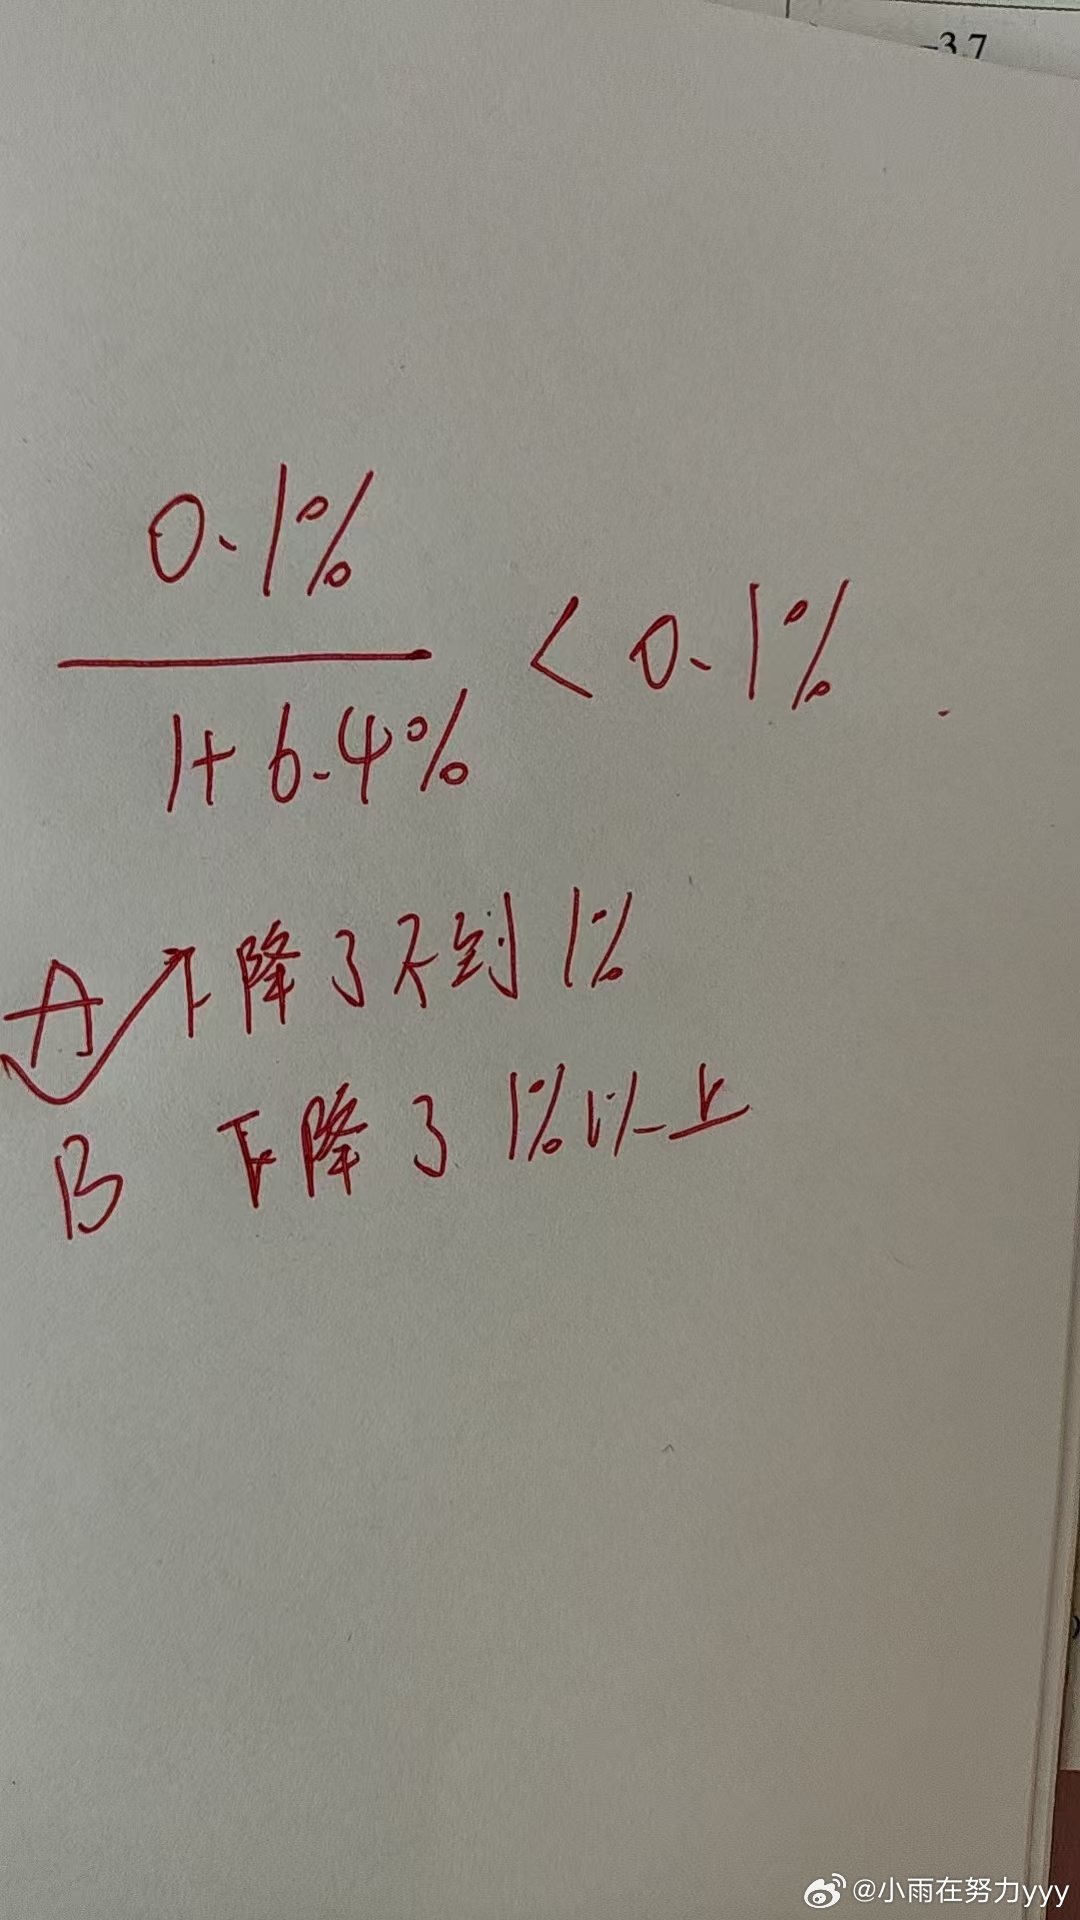 -3.7
0.1%
1+6.4%
< 0.1%
A 下降了不到1%
B 下降了1%以上
@小雨在努力yyy